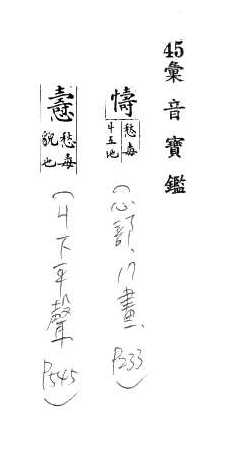 45彙音寶鑑
懤 愁毒 ㄐ五地
(心部、17畫、P233)
懤 愁毒貌也
(ㄐ下平聲 P545)